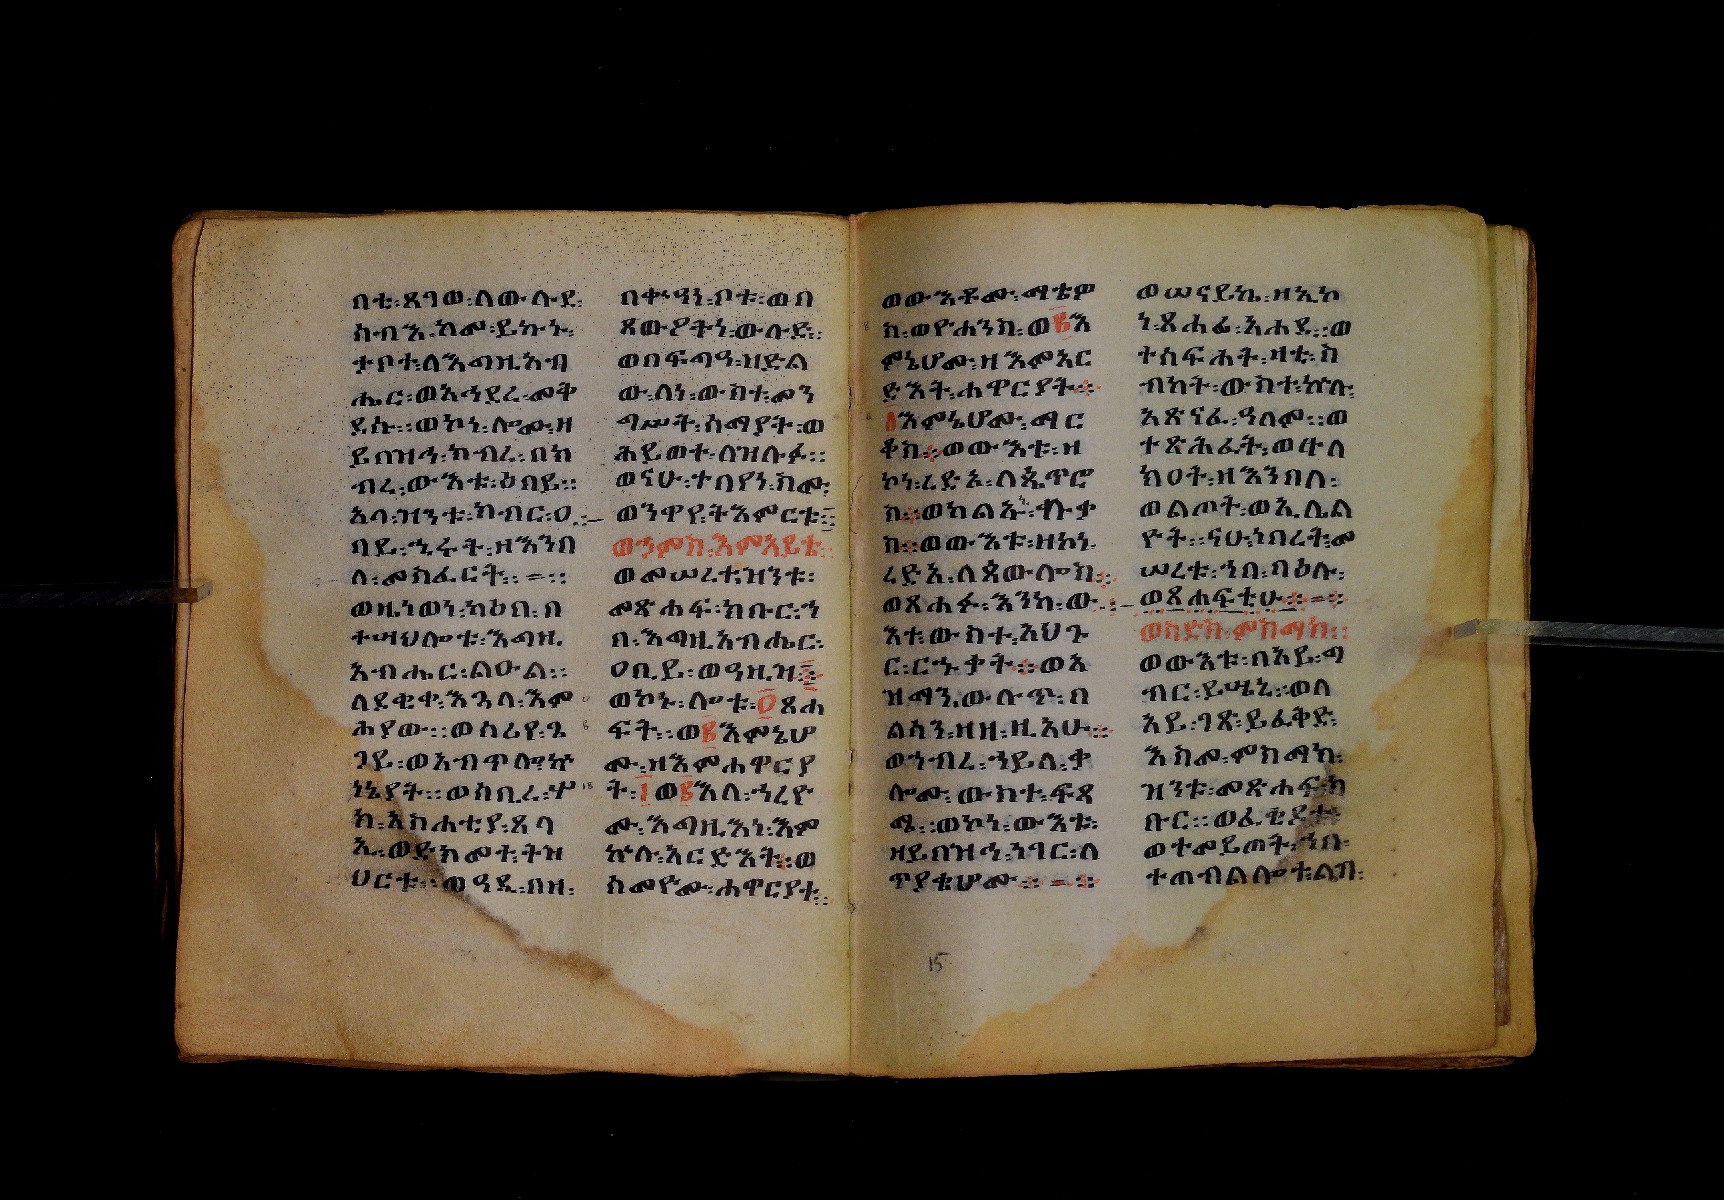 በቲ፡ጸገወ፡ለውሉደ፡
ሰብእ፡ከመ፡ይኩኑ፡
ታቦተ፡ለእግዚአብ
ሔር፡ወአኅደረ፡መቅ
ደሱ፡፡ወኮነ፡ሎሙ፡ዘ
ይበዝኅ፡ክብረ፡በክ
ብረ፡ውእቱ፡ዕበይ፡፡
እሳ፡ዝንቱ፡ክብር፡ዐ
ባይ፡ኂሩት፡ዘእንበ
ለ፡መስፈርት፡፡
ወዚነወነ፡ካዕበ፡በ
ተሣህሎቱ፡እግዚ
አብሔር፡ልዑል፡፡
ለደቂቀ፡እጓለ፡እም
ሕያው፡፡ወሰሪየ፡ጌ
ጋይ፡ወአብጥሎ፡ኵ
ነኔያት፡፡ወሰቢረ፡ሞ
ት፡እስሐቲያ፡ጸባ
ኢ፡ወድክመተ፡ትዝ
ህርቱ፡፡ወዓዲ፡በዘ፡
በቀዓነ፡ቦቱ፡ወበ
ጸውዖትነ፡ውሉድ፡፡
ወበፍጣዓ፡ዝድል
ው፡ለነ፡ውስተ፡መን
ግሥት፡ሰማያት፡ወ
ሕይወተ፡ለዝሉፉ፡፡
ወናሁ፡ተበየነ፡ክሙ፡
ወንዋየ፡ትእምርቱ፡፡
ወንምክ፡እምአይቴ፡
ወመሠረተ፡ዝንቱ፡
መጽሐፍ፡ክቡር፡ኀ
በ፡እግዚአብሔር፡
ዐቢይ፡ወዓዚዝ፡
ወኮኑ፡ሎቱ፡፬ጸሐ
ፍት፡፡ወ፪እምኔሆ
ሙ፡ዘእምሐዋርያ
ት፡፲ወ፪እለ፡ኀረዮ
ሙ፡እግዚእነ፡እም
ኵሉ፡አርድእት፡፡ወ
ሰመዮሙ፡ሐዋርያተ፡፡
ወውእቶሙ፡ማቴዎ
ስ፡ወዮሐንስ፡ወ፪እ
ምኔሆሙ፡ዘእምአር
ድእት፡ሐዋርያት፡
፩እምኔሆሙ፡ማር
ቆስ፡ወውእቱ፡ዘ
ኮነ፡ረድአ፡ለጴጥሮ
ስ፡ወካልኡ፡ሉቃ
ስ፡ወውእቱ፡ዘኮነ
ረድአ፡ለጳውሎስ፡
ወጸሐፉ፡እንከ፡ው
እተ፡ውስተ፡አህጉ
ር፡ርኁቃት፡ወአ
ዝማን፡ውሉጥ፡በ
ልሳን፡ዘዘ፡ዚአሁ፡
ወኀብረ፡ኀይለ፡ቃ
ሎሙ፡ውስተ፡ፍጻ
ሜ፡፡ወኮነ፡ውእቱ፡
ዘይበዝኅ፡ነገር፡ለ
ጥያቄሆሙ፡
ወሠናይኬ፡ዘኢኮ
ነ፡ጸሐፊ፡አሐደ፡፡ወ
ተሰፍሐት፡ዛቲ፡ስ
ብከት፡ውስተ፡ኵሉ፡
አጽናፈ፡ዓለም፡፡ወ
ተጽሕፈት፡ወተለ
ክዐት፡ዘእንበለ፡
ወልጦት፡ወኢሌል
ዮት፡፡ናሁ፡ነበረት፡መ
ሠረቱ፡ኀበ፡ባዕሉ፡
ወጸሐፍቲሁ፡
ወስድስ፡ምክማክ፡፡
ወውእቱ፡በአይ፡ግ
ብር፡ይሤኒ፡፡ወለ
አይ፡ገጽ፡ይፈቅድ፡
እስመ፡ምክማክ፡
ዝንቱ፡መጽሐፍ፡ክ
ቡር፡፡ወፈቂዶቱ፡
ወተመይጦት፡ኀበ፡
ተጠብልሎቱ፡ልብ፡
15